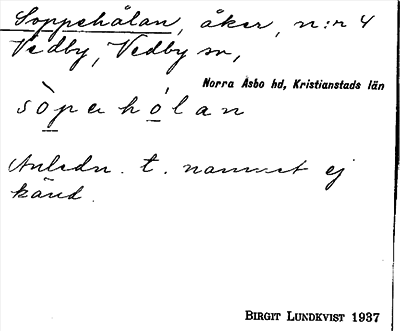 Soppehålan, åker, n:r 4
Vedby, Vedby sn,
Norra Åsbo hd, Kristianstads län
sòpehólan
Anledn. t. namnet ej
känd.
BIRGIT LUNDKVIST 1937